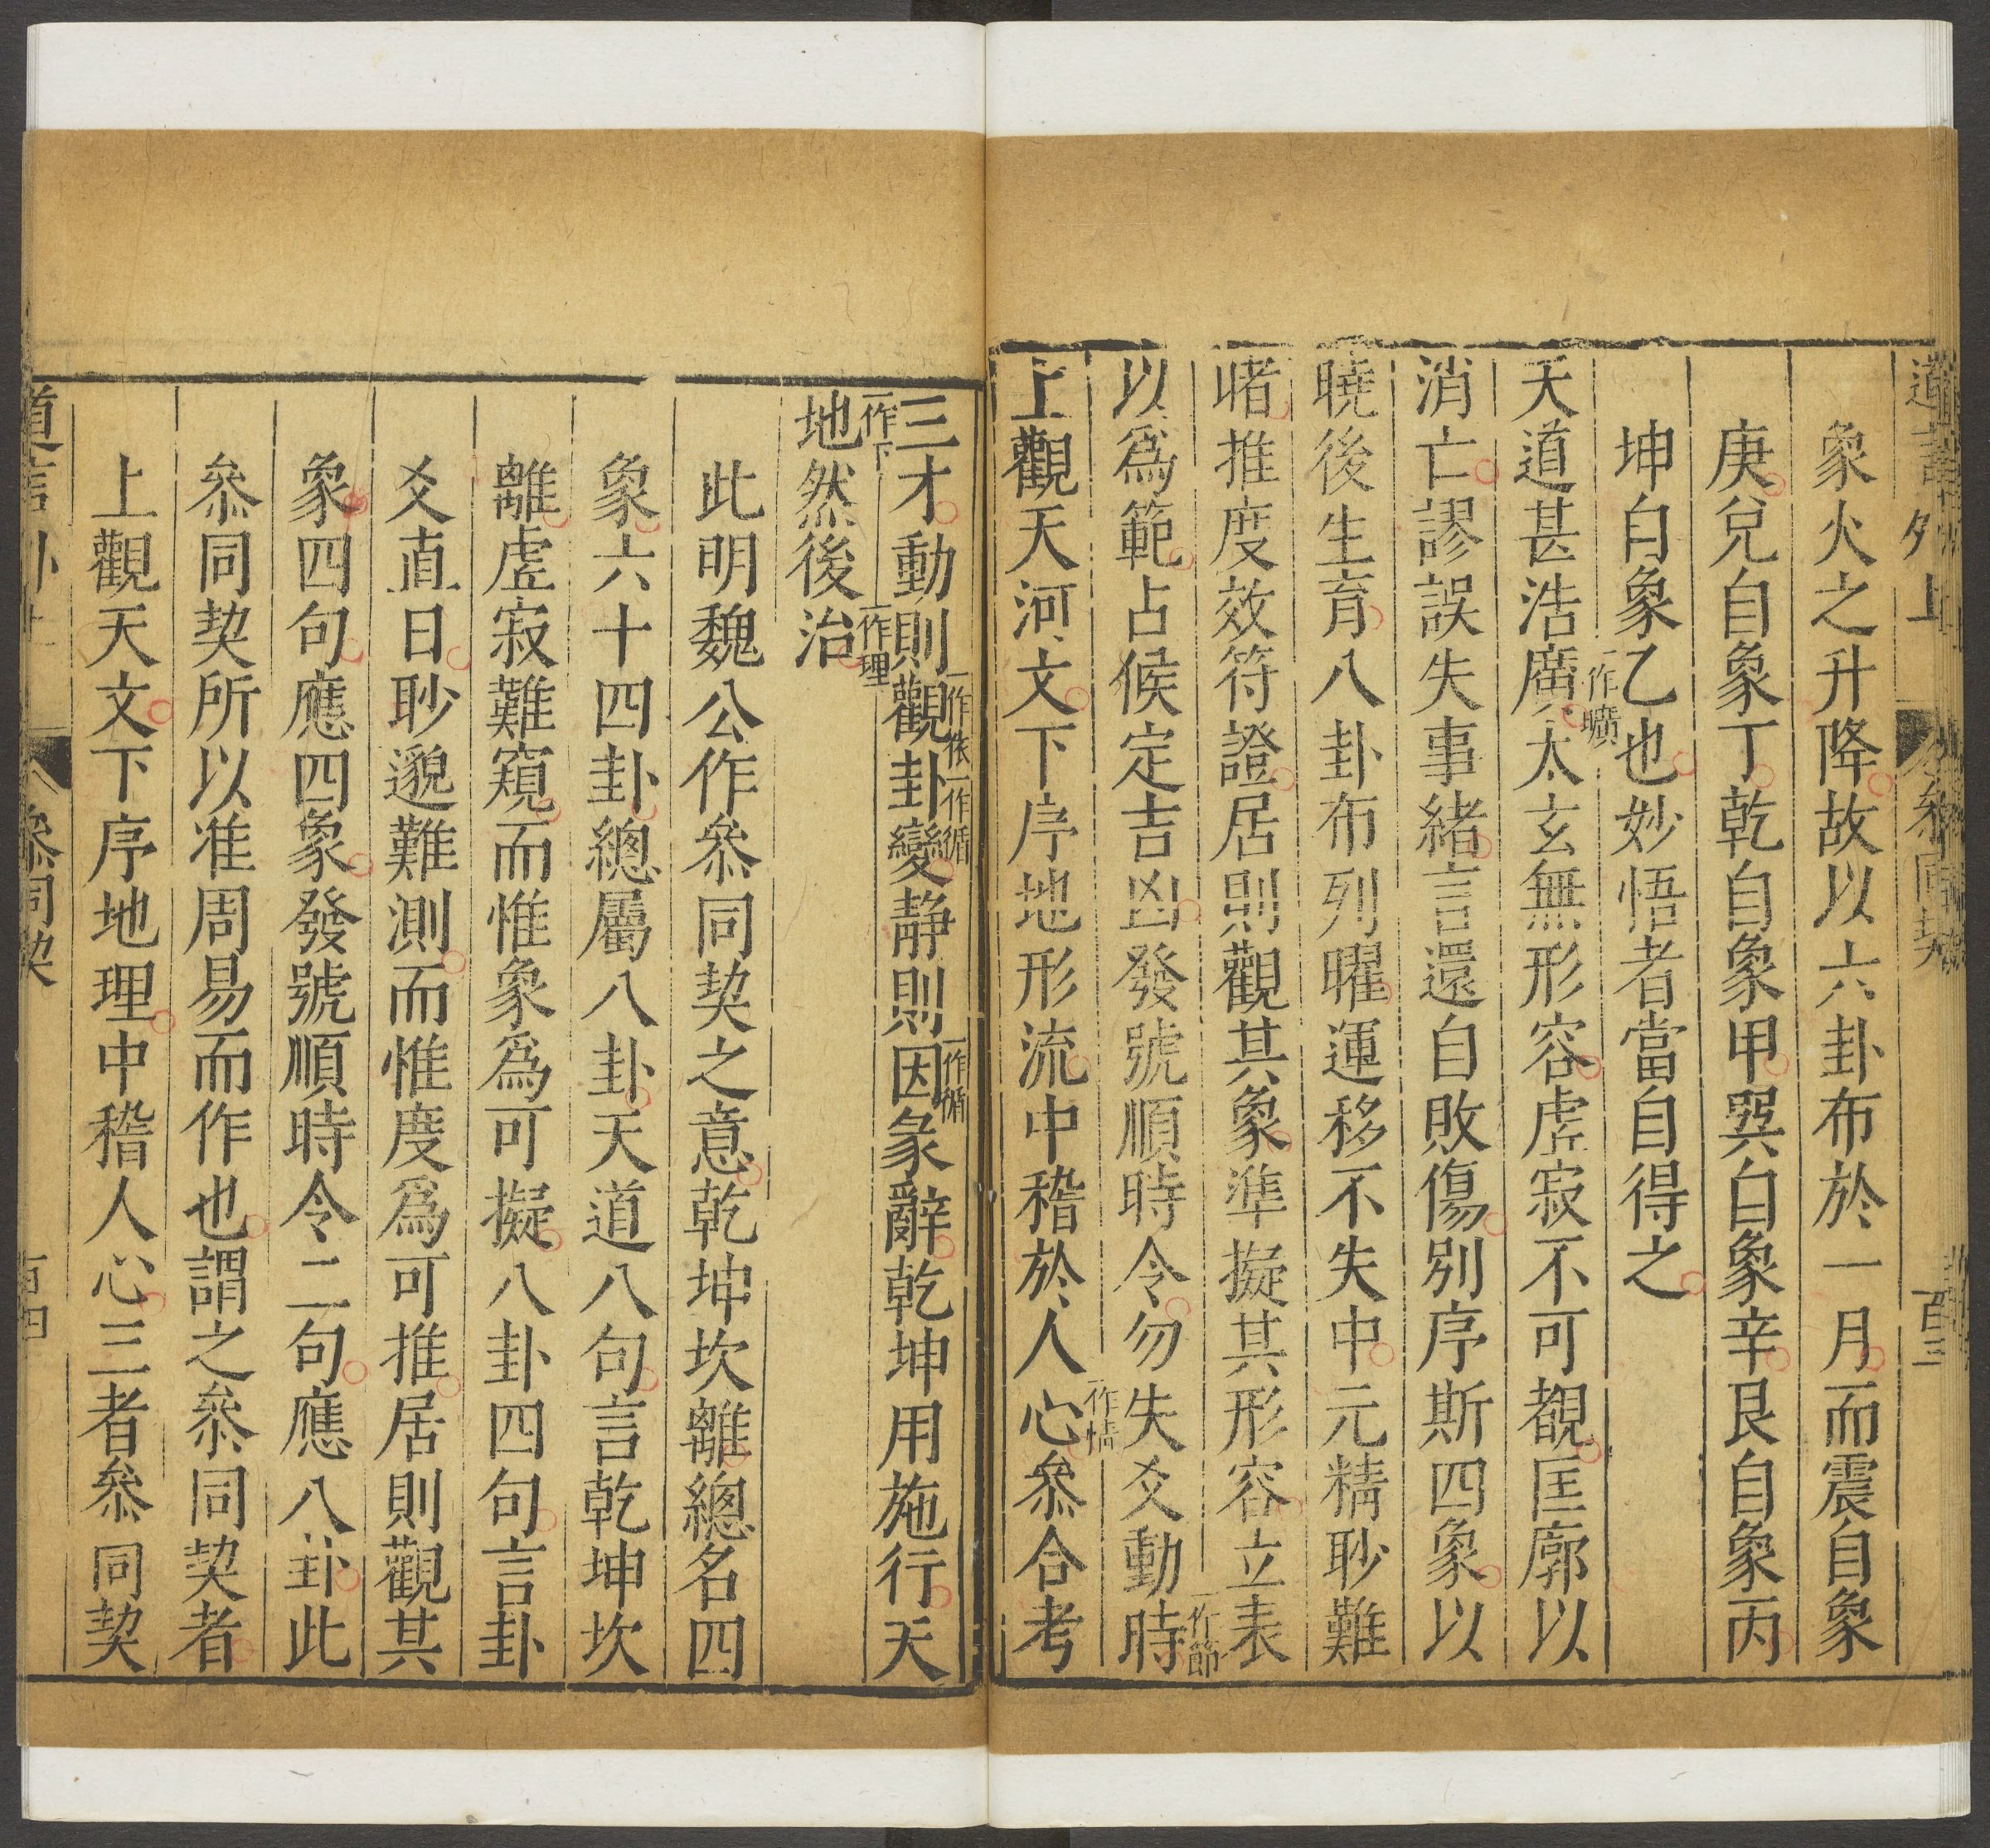 道言外 上 参同契 百三
象火之升降故以六卦布於一月而震自象
庚兌自象丁乾自象甲巽自象辛艮自象丙
坤自象乙也妙悟者當自得之
天道甚浩廣一作曠太玄無形容虛寂不可覩匡廓以
消亡謬誤失事緒言還自敗傷別序斯四象以
曉後生育八卦布列曜運移不失中元精眇難
睹推度效符證居則觀其象準擬其形容立表
以爲範占候定吉凶發號順時令勿失爻動時一作節
上觀天河文下序地形流中稽於人心一作情叅合考
三才動則觀一作依一作循卦變静則因一作循彖辭乾坤用施行天
地一作下然後治一作理
此明魏公作叅同契之意乾坤坎離總名四
象六十四卦總屬八卦天道八句言乾坤坎
離虛寂難窺而惟象爲可擬八卦四句言卦
爻直日眇邈難測而惟度爲可推居則觀其
象四句應四象發號順時令二句應八卦此
叅同契所以准周易而作也謂之叅同契者
上觀天文下序地理中稽人心三者叅同契
道言外 上 叅同契 百四